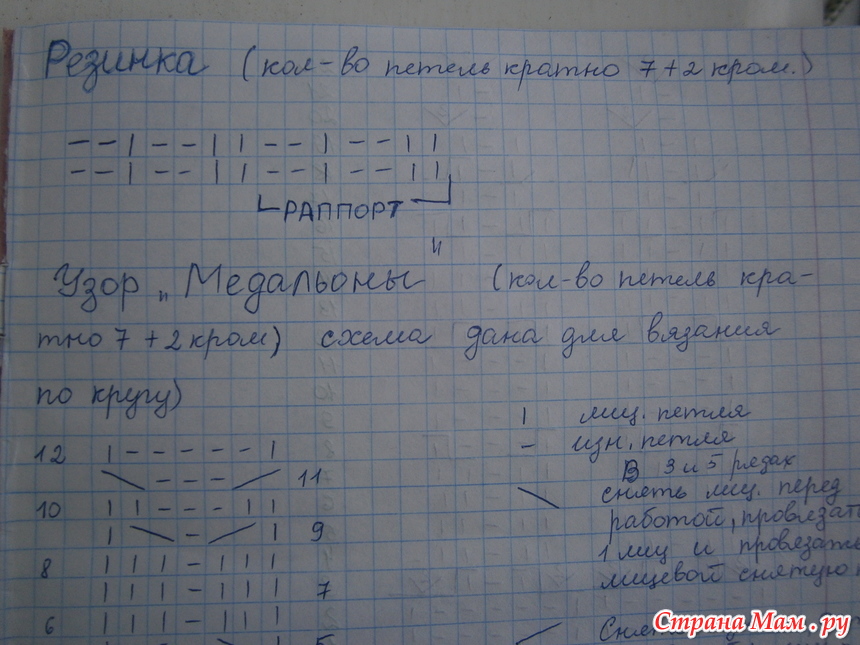 Резинка (кол-во петель кратно 7+2 кром.)
– – | – – | | – – | – – | |
– – | – – | | – – | – – | |
РАППОРТ
Узор „Медальоны" (кол-во петель кра-
тно 7+2 кром) схема дана для вязания
по кругу)
| лиц. петля
– изн. петля
12 | – – – – – |
В 3 и 5 рядах
\ – – – / 11
снять лиц. перед
10 | | – – – | |
работой, провязать
| \ – / | 9
1 лиц и провязать
8 | | | – | | |
лицевой снятую
| | | – | | | 7
6 | | | – | | |
5
Страна Мам.ру